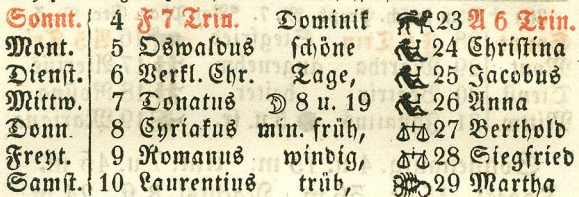 Sonnt. 4 F 7 Trin. Dominik 23 A 6 Trin.
Mont. 5 Oswaldus schöne 24 Christina
Dienst. 6 Verkl. Chr. Tage, 25 Jacobus
Mittw. 7 Donatus ☽ 8 u. 19 26 Anna
Donn. 8 Cyriakus min. früh, 27 Berthold
Freyt. 9 Romanus windig, 28 Siegfried
Samst. 10 Laurentius trüb, 29 Martha